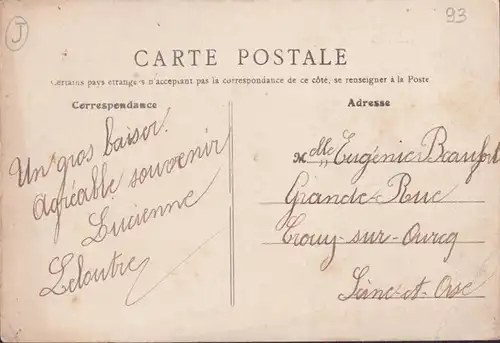 J
93
CARTE POSTALE
Certains pays étrangers n'acceptant pas la correspondance de ce côté, se renseigner à la Poste
Correspondance
Un gros baiser.
Agréable souvenir
Lucienne
Leloutre
Adresse
Mlle Eugénie Beaufort
Grande-Rue
Crouy-sur-Ourcq
Seine-et-Oise